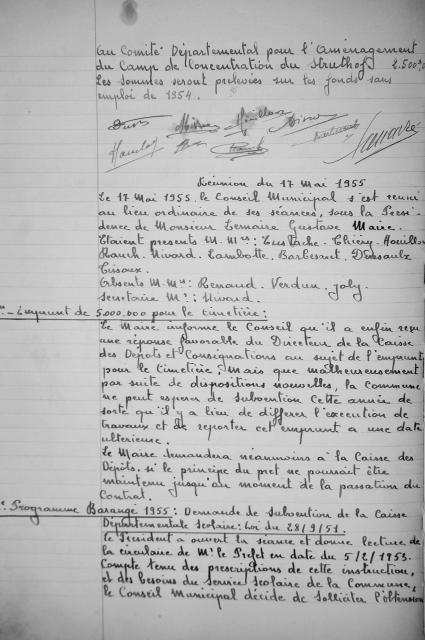 au Comité Départemental pour l'Aménagement
du Camp de Concentration du Struthof 2.500
Les sommes seront prélevées sur les fonds sans
emploi de 1954.
Réunion du 17 Mai 1955
Le 17 Mai 1955 le Conseil Municipal s'est réuni
au lieu ordinaire de ses séances, sous la Présidence
de Monsieur Lemaire Gustave Maire.
Etaient présents M.Mrs: Eustache. Thiéry. Houillon
Rauch. Nivard. Lambotte. Barbesant. Densaulx
Tisoux.
Absents M.Mrs: Renaud. Verdun. Joly.
Secrétaire Mr: Nivard.
Emprunt de 5.000.000 pour le cimetière:
Le Maire informe le Conseil qu'il a enfin reçu
une réponse favorable du Directeur de la Caisse
des Dépôts et Consignations au sujet de l'emprunt
pour le Cimetière, Mais que malheureusement
par suite de dispositions nouvelles, la Commune
ne peut espérer de Subvention Cette année de
sorte qu'il y a lieu de différer l'exécution de
travaux et de reporter cet emprunt a une date
ultérieure.
Le Maire demandera néanmoins à la Caisse des
Dépôts, si le principe du prêt ne pourrait être
maintenu jusqu'au moment de la passation du
Contrat.
Programme Barangé 1955: Demande de Subvention de la Caisse
Départementale scolaire: Loi du 28/9/51.
Le Président a ouvert la séance et donne lecture de
la circulaire de Mr le Préfet en date du 5/2/1953.
Compte tenu des prescriptions de cette instruction,
et des besoins du Service scolaire de la Commune,
le Conseil Municipal décide de solliciter l'obtention